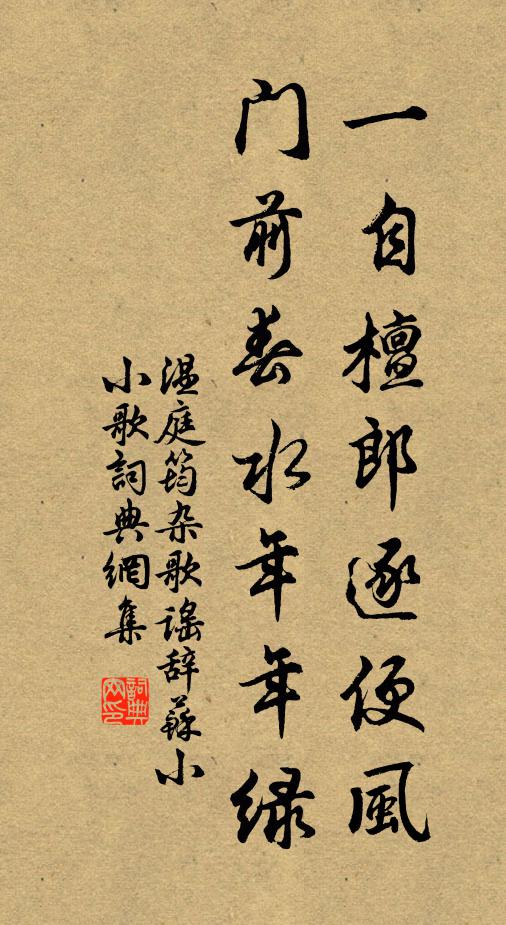 一自檀郎逐便風
门前春水年年绿
温庭筠杂歌謠辞蘇小
小歌詞典網集
詞典网印